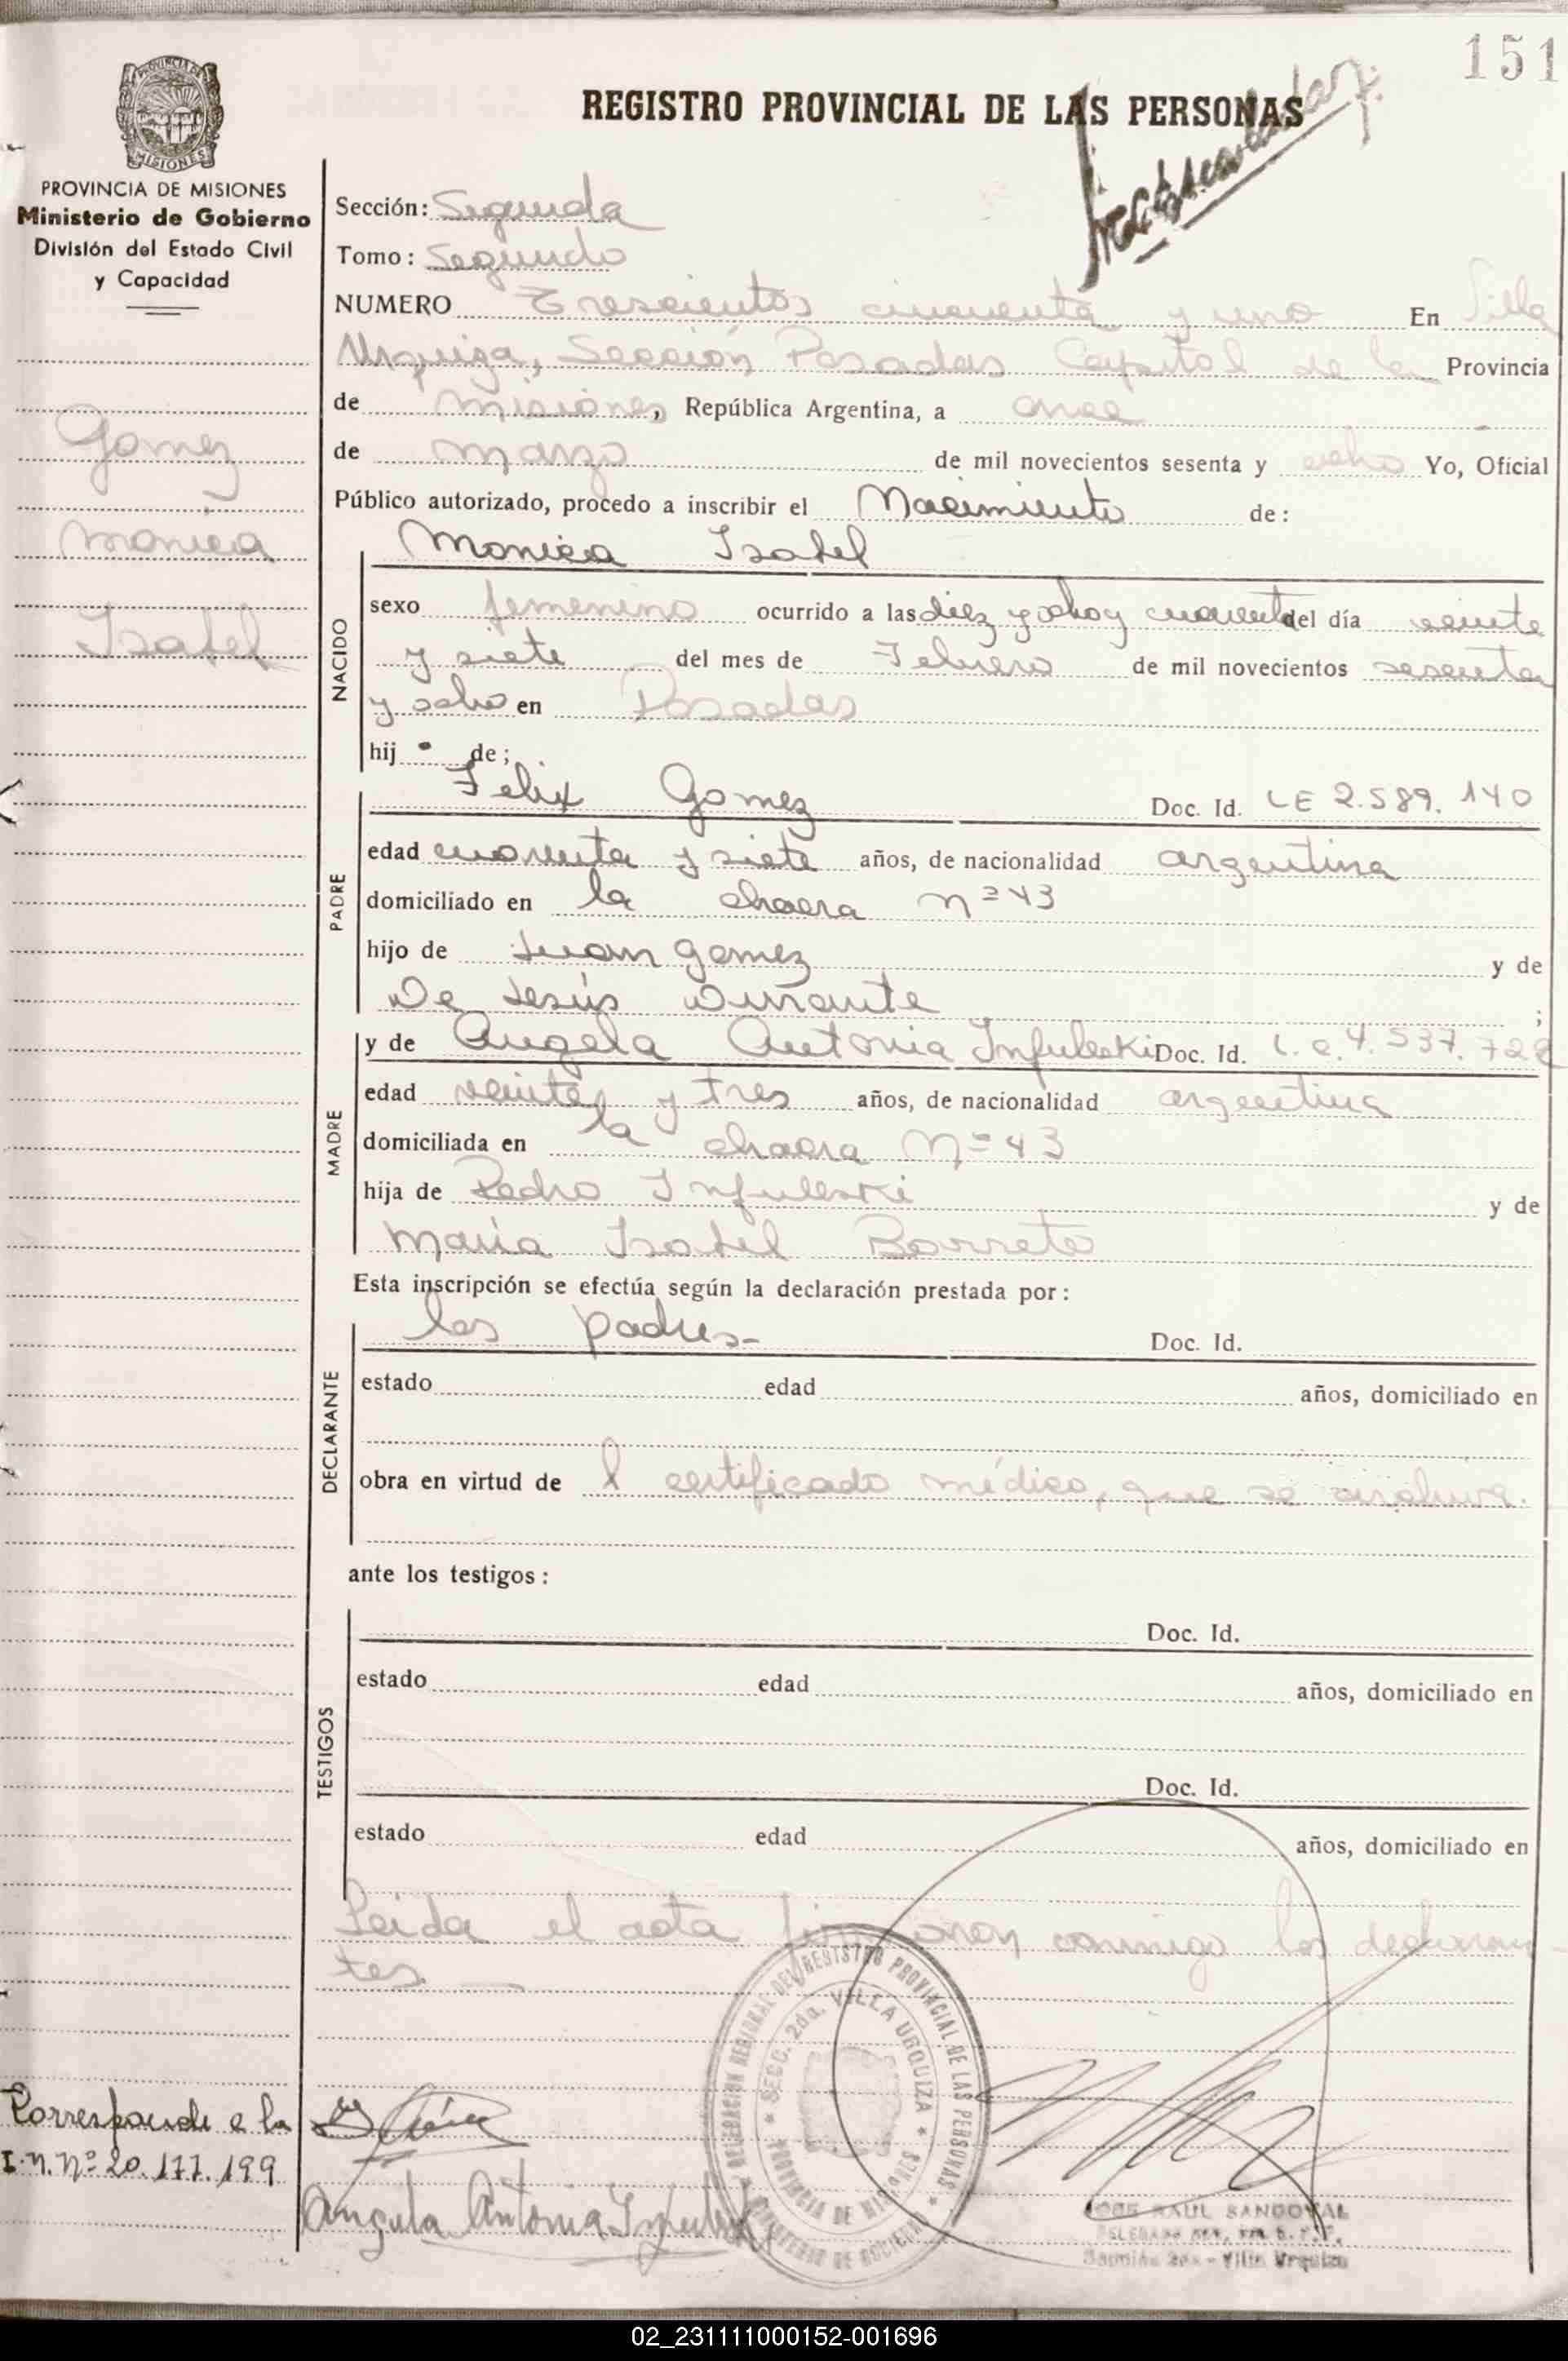 151
PROVINCIA DE
MISIONES
PROVINCIA DE MISIONES
Ministerio de Gobierno
División del Estado Civil
y Capacidad
Gomez
Monica
Isabel
REGISTRO PROVINCIAL DE LAS PERSONAS
Sección: Segunda
Tomo: Segundo
NUMERO Trescientos cincuenta y uno En Villa
Urquiza, Sección Posadas Capital de la Provincia
de Misiones, República Argentina, a once
de marzo de mil novecientos sesenta y ocho Yo, Oficial
Público autorizado, procedo a inscribir el Nacimiento de:
Monica Isabel
NACIDO
sexo femenino ocurrido a las diez y ocho y cuarenta del día veinte
y siete del mes de Febrero de mil novecientos sesenta
y ocho en Posadas
hij de;
Felix Gomez Doc. Id. LE 2.589.140
PADRE
edad cuarenta y siete años, de nacionalidad argentina
domiciliado en la chacra nº 43
hijo de Juan Gomez y de
De Jesús Durante ;
y de Angela Antonia Infuleski Doc. Id. L.C. 4.537.722
MADRE
edad veinte y tres años, de nacionalidad argentina
domiciliada en la chacra Nº 43
hija de Pedro Infuleski y de
María Isabel Barreto
Esta inscripción se efectúa según la declaración prestada por:
los padres- Doc. Id.
DECLARANTE
estado edad años, domiciliado en
obra en virtud de l certificado médico, que se archiva.
ante los testigos:
Doc. Id.
TESTIGOS
estado edad años, domiciliado en
Doc. Id.
estado edad años, domiciliado en
Leida el acta firmaron conmigo los declaran-
tes
DELEGACION REGIONAL DEL REGISTRO PROVINCIAL DE LAS PERSONAS
SECC. 2da. VILLA URQUIZA
PROVINCIA DE MISIONES
MINISTERIO DE GOBIERNO
Corresponde a la
I.N. Nº 20.177.199
Angela Antonia Infuleski
JOSE RAUL SANDOVAL
Sección 2da - Villa Urquiza
02_231111000152-001696